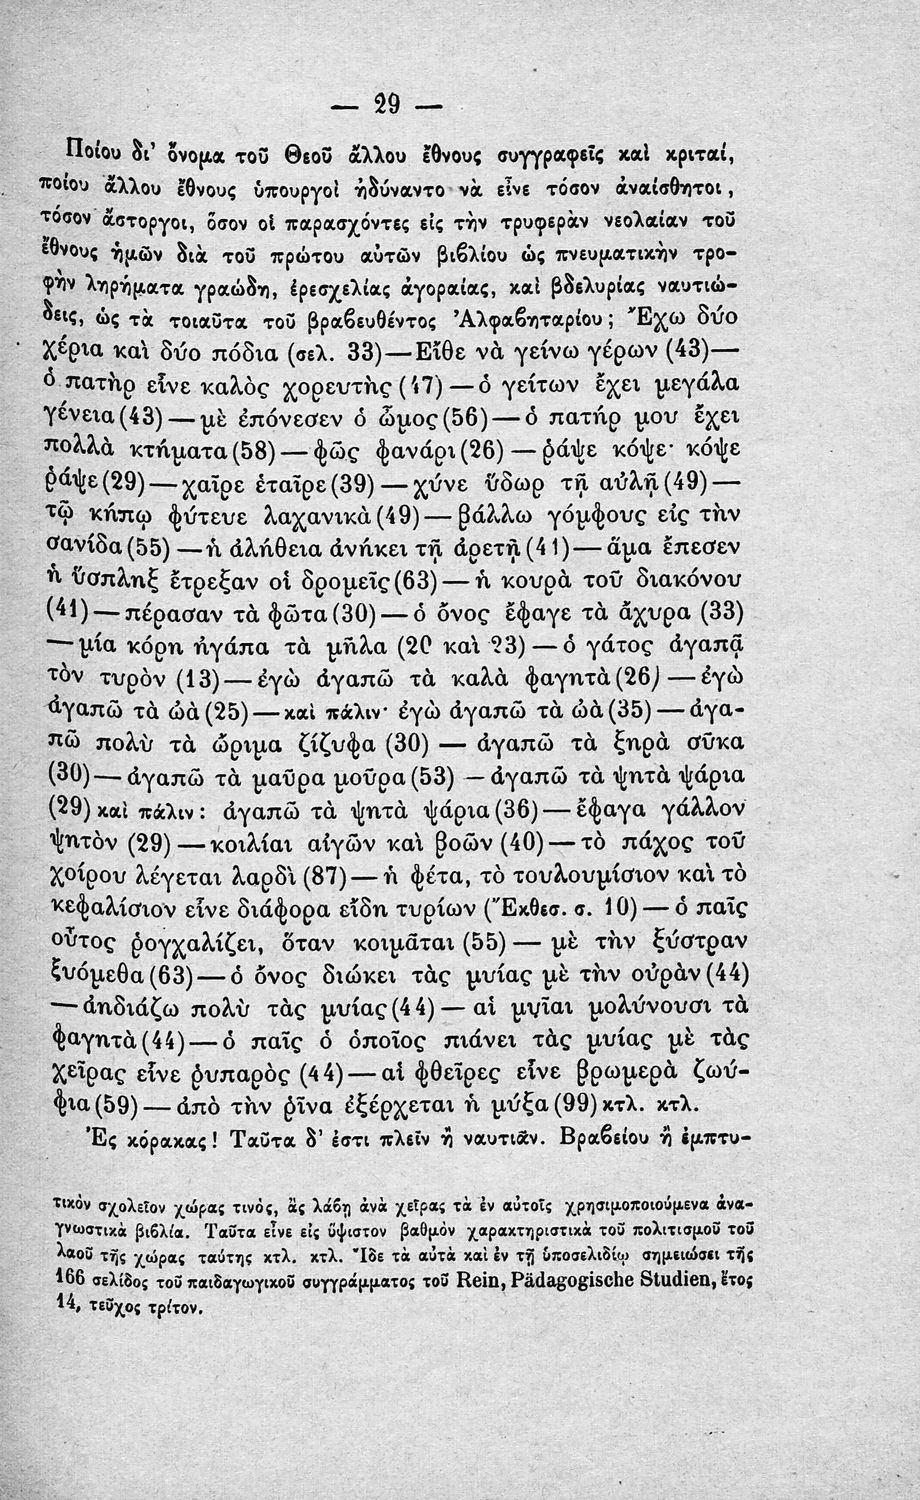 — 29 —
Ποίου δι' ὄνομα τοῦ Θεοῦ ἄλλου ἔθνους συγγραφεῖς καὶ κριταί,
ποίου ἄλλου ἔθνους ὑπουργοὶ ἠδύναντο νὰ εἶνε τόσον ἀναίσθητοι,
τόσον ἄστοργοι, ὅσον οἱ παρασχόντες εἰς τὴν τρυφερὰν νεολαίαν τοῦ
ἔθνους ἡμῶν διὰ τοῦ πρώτου αὐτῶν βιβλίου ὡς πνευματικὴν τρο-
φὴν ληρήματα γραώδη, ἐρεσχελίας ἀγοραίας, καὶ βδελυρίας ναυτιώ-
δεις, ὡς τὰ τοιαῦτα τοῦ βραβευθέντος Ἀλφαβηταρίου; Ἔχω δύο
χέρια καὶ δύο πόδια (σελ. 33)—Εἴθε νὰ γείνω γέρων (43)—
ὁ πατὴρ εἶνε καλὸς χορευτὴς (47) — ὁ γείτων ἔχει μεγάλα
γένεια (43) — μὲ ἐπόνεσεν ὁ ὦμος (56) — ὁ πατήρ μου ἔχει
πολλὰ κτήματα (58) — φῶς φανάρι (26) — ῥάψε κόψε· κόψε
ῥάψε (29) — χαῖρε ἑταῖρε (39) — χύνε ὕδωρ τῇ αὐλῇ (49) —
τῷ κήπῳ φύτευε λαχανικὰ (49) — βάλλω γόμφους εἰς τὴν
σανίδα (55) — ἡ ἀλήθεια ἀνήκει τῇ ἀρετῇ (41) — ἅμα ἔπεσεν
ἡ ὕσπληξ ἔτρεξαν οἱ δρομεῖς (63) — ἡ κουρὰ τοῦ διακόνου
(41) — πέρασαν τὰ φῶτα (30) — ὁ ὄνος ἔφαγε τὰ ἄχυρα (33)
— μία κόρη ἠγάπα τὰ μῆλα (20 καὶ 23) — ὁ γάτος ἀγαπᾷ
τὸν τυρὸν (13) — ἐγὼ ἀγαπῶ τὰ καλὰ φαγητὰ (26) — ἐγὼ
ἀγαπῶ τὰ ὠὰ (25) — καὶ πάλιν· ἐγὼ ἀγαπῶ τὰ ὠὰ (35) — ἀγα-
πῶ πολὺ τὰ ὥριμα ζίζυφα (30) — ἀγαπῶ τὰ ξηρὰ σῦκα
(30) — ἀγαπῶ τὰ μαῦρα μοῦρα (53) — ἀγαπῶ τὰ ψητὰ ψάρια
(29) καὶ πάλιν: ἀγαπῶ τὰ ψητὰ ψάρια (36) — ἔφαγα γάλλον
ψητὸν (29) — κοιλίαι αἰγῶν καὶ βοῶν (40) — τὸ πάχος τοῦ
χοίρου λέγεται λαρδὶ (87) — ἡ φέτα, τὸ τουλουμίσιον καὶ τὸ
κεφαλίσιον εἶνε διάφορα εἴδη τυρίων (Ἔκθεσ. σ. 10) — ὁ παῖς
οὗτος ῥογχαλίζει, ὅταν κοιμᾶται (55) — μὲ τὴν ξύστραν
ξυόμεθα (63) — ὁ ὄνος διώκει τὰς μυίας μὲ τὴν οὐρὰν (44)
— ἀηδιάζω πολὺ τὰς μυίας (44) — αἱ μυῖαι μολύνουσι τὰ
φαγητὰ (44) — ὁ παῖς ὁ ὁποῖος πιάνει τὰς μυίας μὲ τὰς
χεῖρας εἶνε ῥυπαρὸς (44) — αἱ φθεῖρες εἶνε βρωμερὰ ζωύ-
φια (59) — ἀπὸ τὴν ῥῖνα ἐξέρχεται ἡ μύξα (99) κτλ. κτλ.
Ἐς κόρακας! Ταῦτα δ' ἐστι πλεῖν ἢ ναυτιᾶν. Βραβείου ἢ ἐμπτυ-
τικὸν σχολεῖον χώρας τινὸς, ἂς λάβῃ ἀνὰ χεῖρας τὰ ἐν αὐτοῖς χρησιμοποιούμενα ἀνα-
γνωστικὰ βιβλία. Ταῦτα εἶνε εἰς ὕψιστον βαθμὸν χαρακτηριστικὰ τοῦ πολιτισμοῦ τοῦ
λαοῦ τῆς χώρας ταύτης κτλ. κτλ. Ἴδε τὰ αὐτὰ καὶ ἐν τῇ ὑποσελιδίῳ σημειώσει τῆς
166 σελίδος τοῦ παιδαγωγικοῦ συγγράμματος τοῦ Rein, Pädagogische Studien, ἔτος
14, τεῦχος τρίτον.